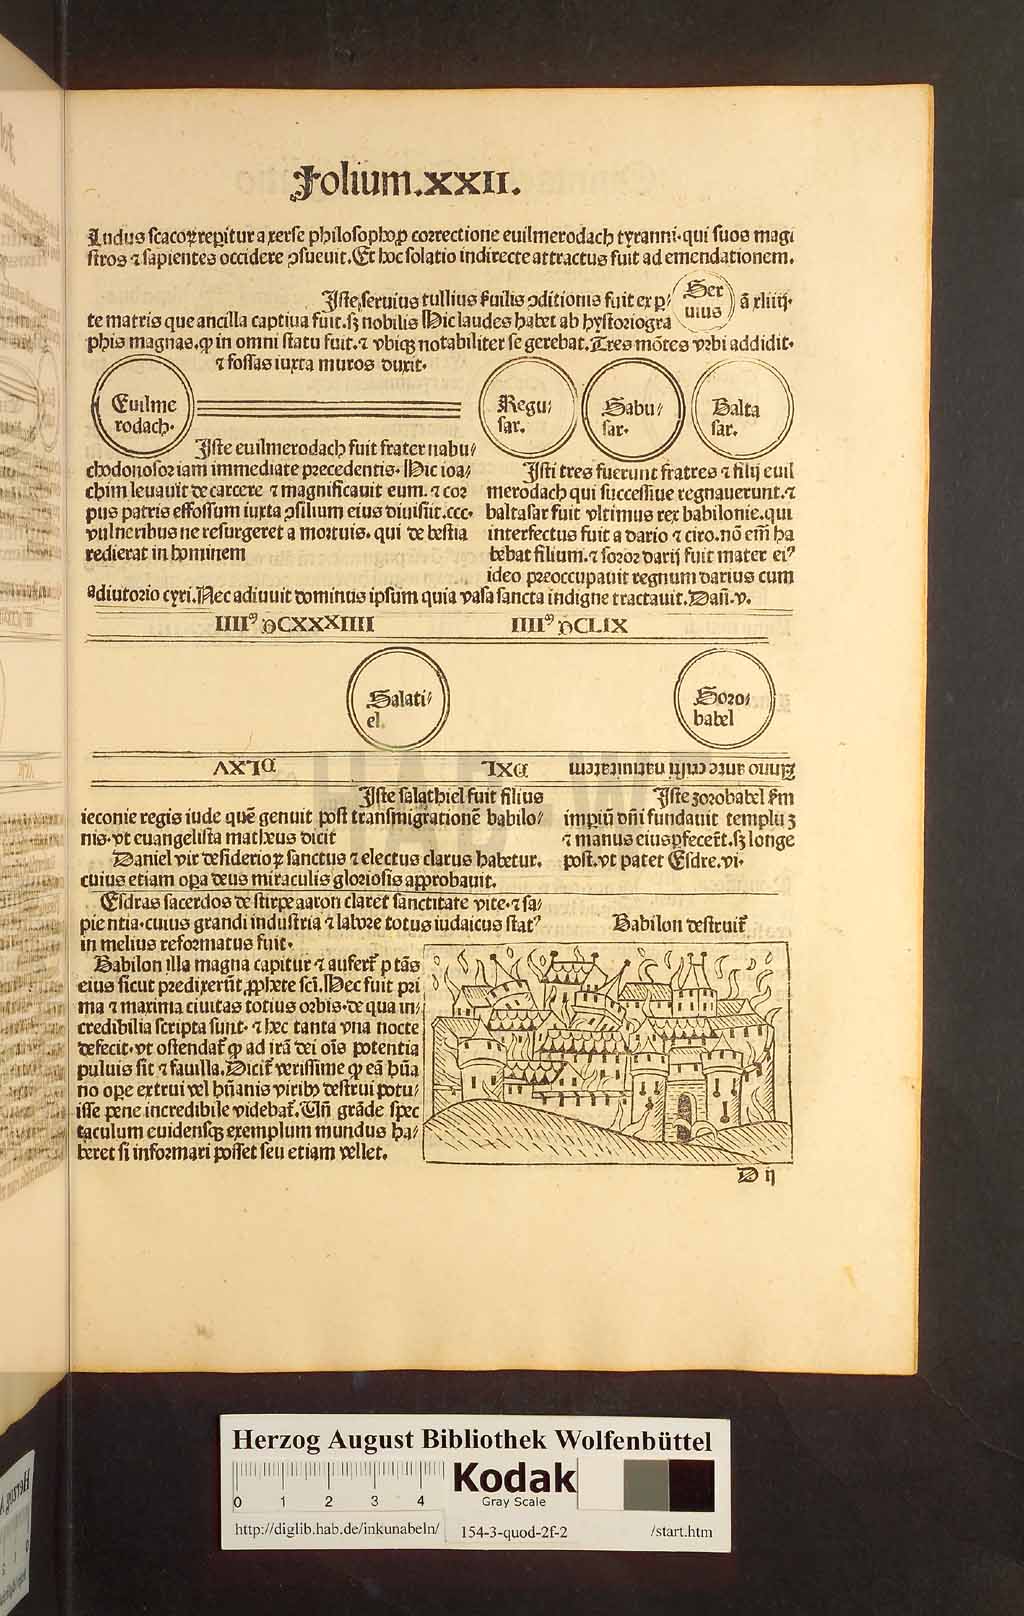 Folium.XXII.
Ludus scacoꝝ repitur a xerse philosophoꝝ correctione euilmerodach tyranni· qui suos magi
stros ⁊ sapientes occidere ꝯsueuit. Et hoc solatio indirecte attractus fuit ad emendationem.
Ser
uius
ã xliiij·
Iste seruius tullius ẜuilis ꝯditionis fuit ex ꝑ⸗
te matris que ancilla captiua fuit. sꝫ nobilis Hic laudes habet ab hystoriogra
phis magnas. ꝙ in omni statu fuit. ⁊ vbiqꝫ notabiliter se gerebat. Tres mõtes vrbi addidit·
⁊ fossas iuxta muros duxit·
Euilme
rodach·
Regu⸗
sar.
Sabu⸗
sar·
Balta
sar.
Iste euilmerodach fuit frater nabu⸗
chodonosor iam immediate precedentis· Hic ioa⸗
chim leuauit de carcere ⁊ magnificauit eum. ⁊ cor
pus patris effossum iuxta ꝯsilium eius diuisiit .ccc·
vulneribus ne resurgeret a mortuis· qui de bestia
redierat in hominem
Isti tres fuerunt fratres ⁊ filij euil
merodach qui successiue regnauerunt. ⁊
baltasar fuit vltimus rex babilonie. qui
interfectus fuit a dario ⁊ ciro. nõ em̃ ha
bebat filium. ⁊ soror darij fuit mater eiꝰ
ideo preoccupauit regnum darius cum
adiutorio cyri. Nec adiuuit dominus ipsum quia vasa sancta indigne tractauit. Dañ. v.
IIIIꝰ DCXXXIIII IIIIꝰ DCLIX
Salati⸗
el.
Soro⸗
babel
DLXV DXL Anno ante cristi natiuitatem
Iste salathiel fuit filius
ieconie regis iude quẽ genuit post transmigrationẽ babilo⸗
nis· vt euangelista matheus dicit
Daniel vir desiderioꝝ sanctus ⁊ electus clarus habetur.
cuius etiam oꝑa deus miraculis gloriosis approbauit.
Iste zorobabel ẜm
imperiũ dñi fundauit templũ ꝫ
⁊ manus eius ꝑfecer̃t. sꝫ longe
post. vt patet Esdre. vi·
Esdras sacerdos de stirpe aaron claret sanctitate vite· ⁊ sa⸗
pientia· cuius grandi industria ⁊ labore totus iudaicus statꝰ
in melius reformatus fuit·
Babilon destruit̃
Babilon illa magna capitur ⁊ aufert̃ p tãs
eius sicut predixerũt ꝓphete sci̇. Hec fuit pri
ma ⁊ maxima ciuitas totius orbis· de qua in⸗
credibilia scripta sunt· ⁊ hec tanta vna nocte
defecit· vt ostendat̃ ꝙ ad irã dei oı̃s potentia
puluis sit ⁊ fauilla. Dicit̃ verissime ꝙ eã hũa
no oꝑe extrui vel hũanis viribꝰ destrui potu⸗
isse pene incredibile videbat̃. Uñ grãde spec
taculum euidensqꝫ exemplum mundus ha⸗
beret si informari posset seu etiam vellet.
D ij
Herzog August Bibliothek Wolfenbüttel
0 1 2 3 4
Kodak
Gray Scale
http://diglib.hab.de/inkunabeln/ 154-3-quod-2f-2 /start.htm